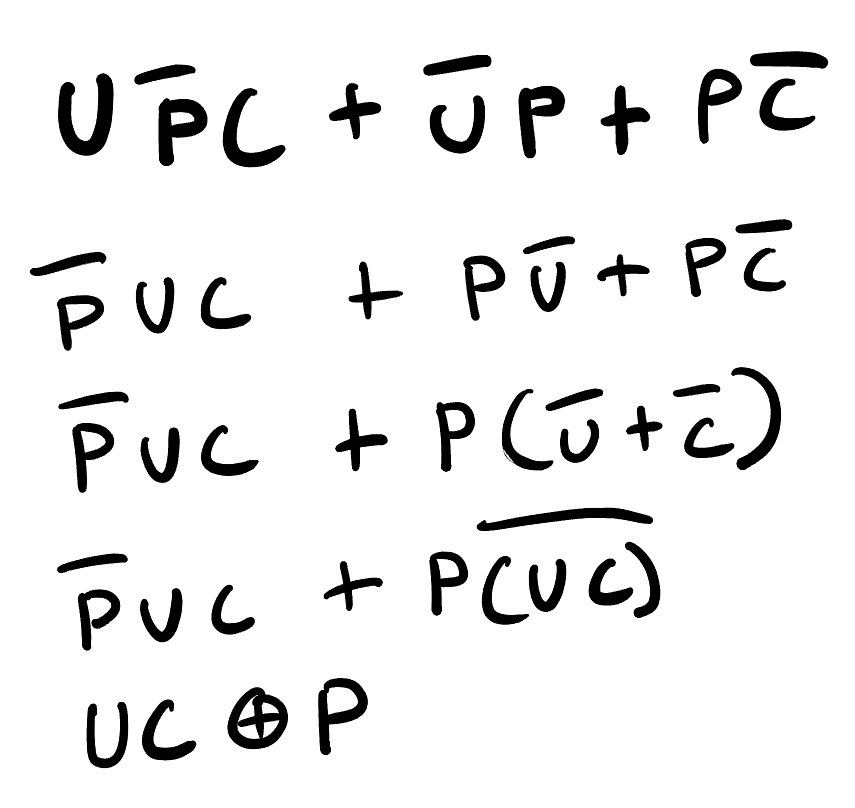 UP̅C + U̅P + PC̅
P̅UC + PU̅ + PC̅
P̅UC + P(U̅ + C̅)
P̅UC + P(̅U̅C̅)̅
UC ⊕ P